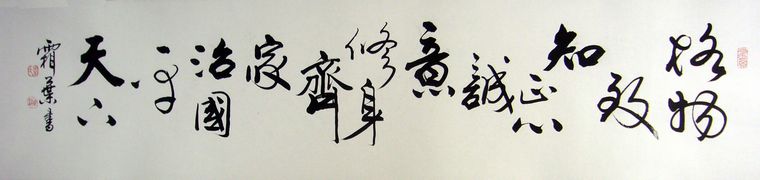 格物致知正心誠意修身齊家治國平天下
霜葉書